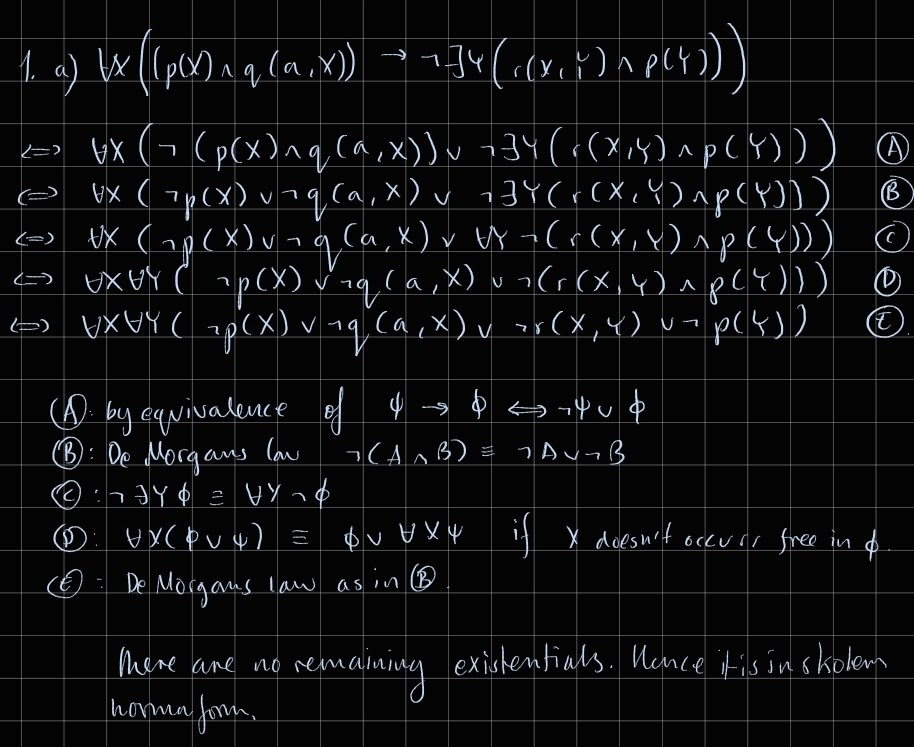 1. a) ∀X((p(X) ∧ q(a,X)) → ¬∃Y(r(X,Y) ∧ p(Y)))
⇔ ∀X(¬(p(X)∧q(a,X)) ∨ ¬∃Y(r(X,Y) ∧ p(Y))) Ⓐ
⇔ ∀X(¬p(X) ∨ ¬q(a,X) ∨ ¬∃Y(r(X,Y) ∧ p(Y))) Ⓑ
⇔ ∀X(¬p(X) ∨ ¬q(a,X) ∨ ∀Y¬(r(X,Y) ∧ p(Y))) Ⓒ
⇔ ∀X∀Y(¬p(X) ∨ ¬q(a,X) ∨ ¬(r(X,Y) ∧ p(Y))) Ⓓ
⇔ ∀X∀Y(¬p(X) ∨ ¬q(a,X) ∨ ¬r(X,Y) ∨ ¬p(Y)) Ⓔ.
Ⓐ: by equivalence of ψ → ϕ ⇔ ¬ψ ∨ ϕ
Ⓑ: De Morgans law ¬(A ∧ B) ≡ ¬A ∨ ¬B
Ⓒ: ¬∃Yϕ ≡ ∀Y¬ϕ
Ⓓ: ∀X(ϕ ∨ ψ) ≡ ϕ ∨ ∀Xψ if X doesn't occurs free in ϕ.
Ⓔ: De Morgans law as in Ⓑ.
There are no remaining existentials. Hence it is in skolem
norma form.